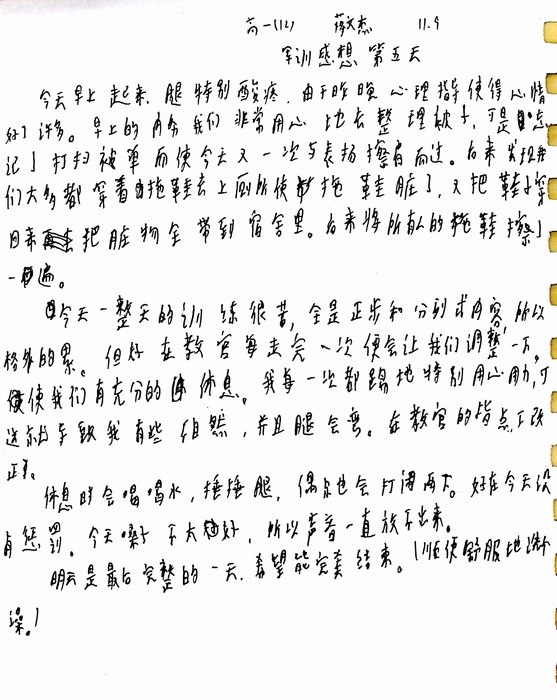 高一(12) 蒋文杰 11.9
军训感想 第五天
今天早上起来,腿特别酸疼.由于昨晚心理指导使得心情
好了许多。早上的内务我们非常用心地去整理被子,可是忘
记了打扫被单而使今天又一次与表扬擦肩而过。后来发现我
们大多都穿着拖鞋去上厕所使拖鞋脏了,又把鞋子穿
回来把脏物全带到宿舍里。后来将所有人的拖鞋擦了
一遍。
今天一整天的训练很苦,全是正步和分列式内容所以
格外的累。但好在教官每走完一次便会让我们调整一下。
使我们有充分的休息。我每一次都踢地特别用心用力,可
这却导致我有些 ,并且腿会弯。在教官的指点下改
正了。
休息时会喝喝水,捶捶腿,偶尔也会打闹两下。好在今天没
有惩罚。今天嗓子不太好,所以声音一直放不出来。
明天是最后完整的一天.希望能完美结束。(顺便舒服地洗个
澡。)